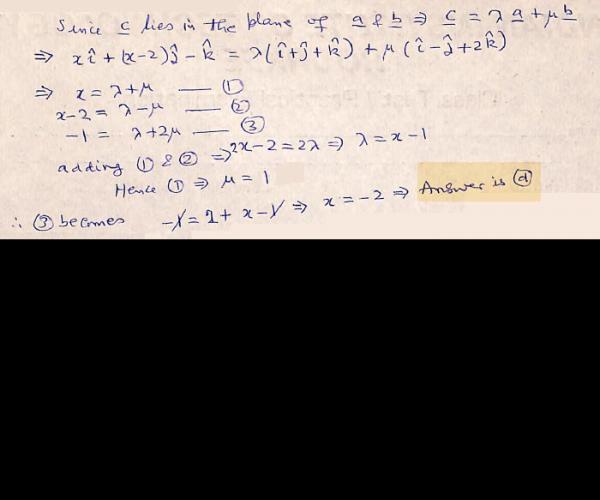 Since c lies in the plane of a & b ⇒ c = λ a + μ b
⇒ x î + (x-2) ĵ - k̂ = λ ( î + ĵ + k̂ ) + μ ( î - ĵ + 2 k̂ )
⇒ x = λ + μ — ①
x-2 = λ - μ — ②
-1 = λ + 2μ — ③
adding ① & ② ⇒ 2x - 2 = 2λ ⇒ λ = x - 1
Hence ① ⇒ μ = 1
∴ ③ becomes -1 = 2 + x - 1 ⇒ x = -2 ⇒ Answer is ⓓ